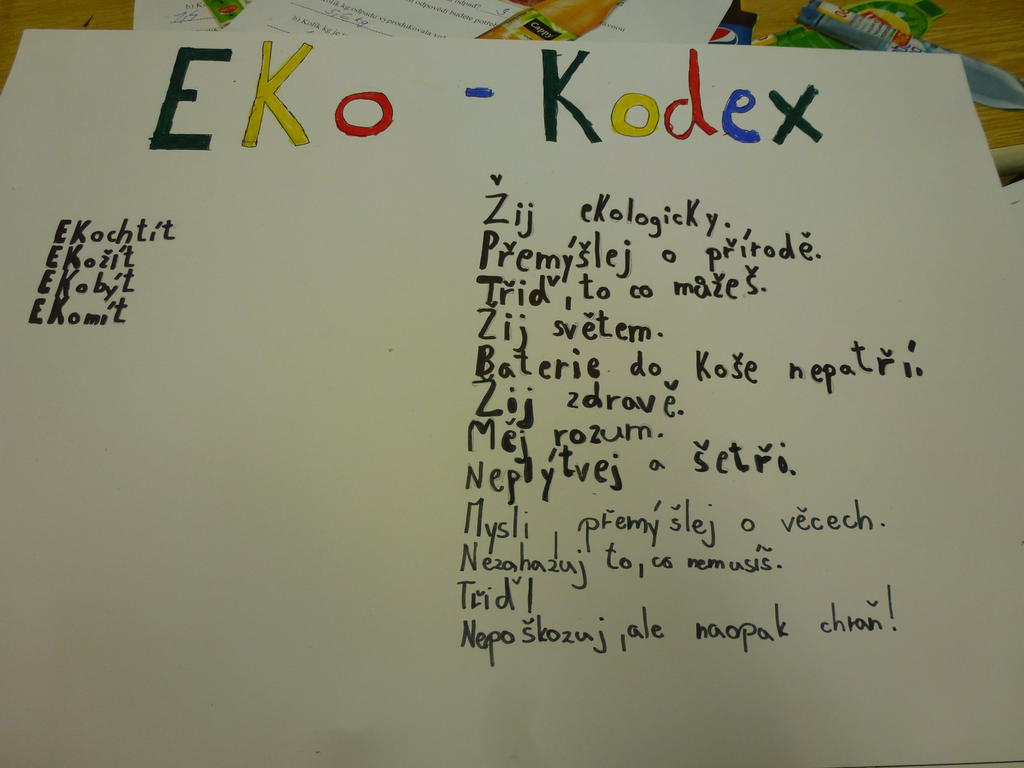 b) Kolik kg odpadu vyprodukovala
EKo - Kodex
EKochtít
EKožít
EKobýt
EKomít
Žij ekologicky.
Přemýšlej o přírodě.
Třiď, to co mažeš.
Žij světem.
Baterie do Koše nepatří.
Žij zdravě.
Měj rozum.
Neplýtvej a šetři.
Mysli, přemýšlej o věcech.
Nezahazuj to, co nemusíš.
Třiď!
Nepoškozuj, ale naopak chraň!
Cappy